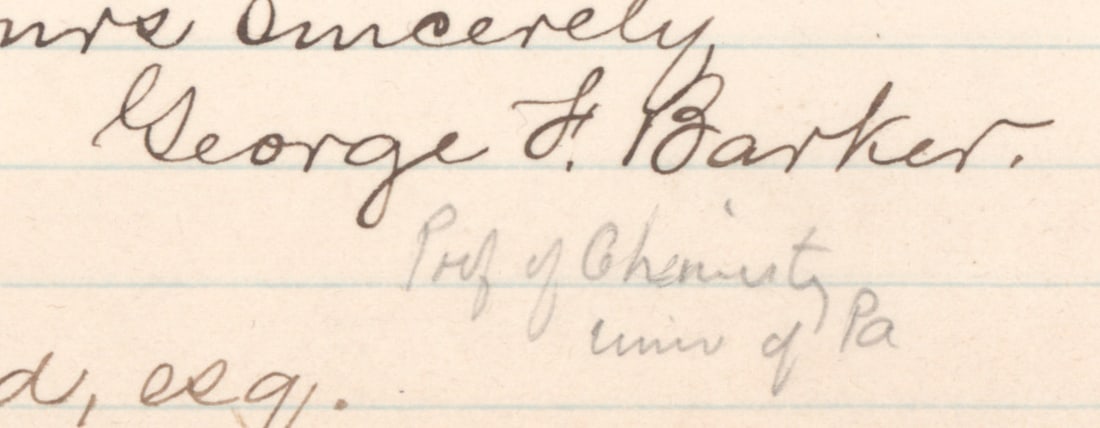 urs sincerely,
George F. Barker.
Prof of Chemistry
univ of Pa
d, esq.